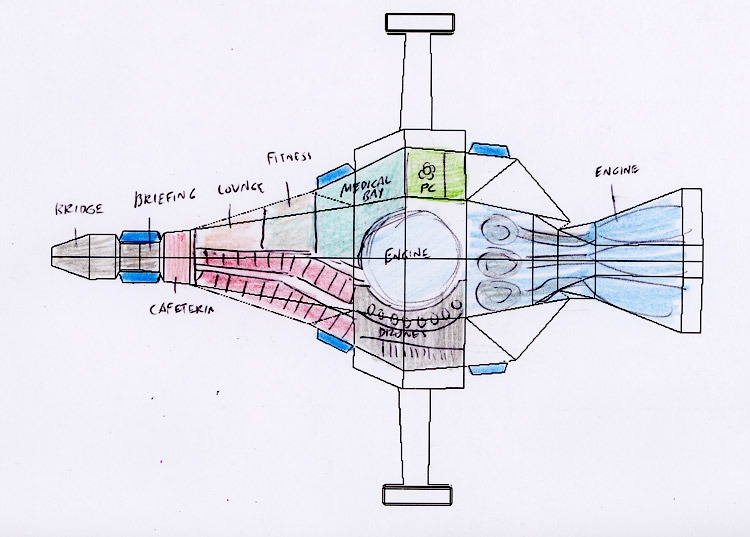 BRIDGE
BRIEFING
LOUNGE
FITNESS
MEDICAL
BAY
PC
ENGINE
ENGINE
CAFETERIA
DRONES